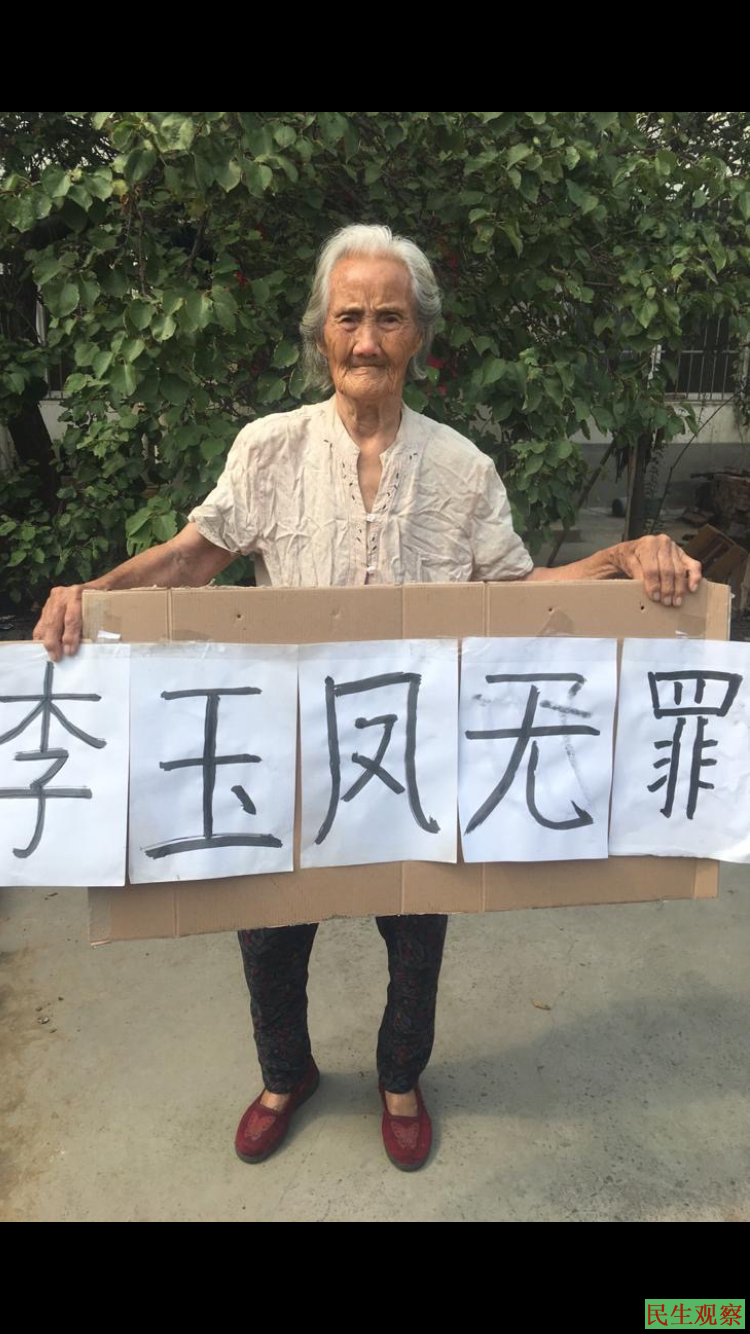 李玉凤无罪
民生观察